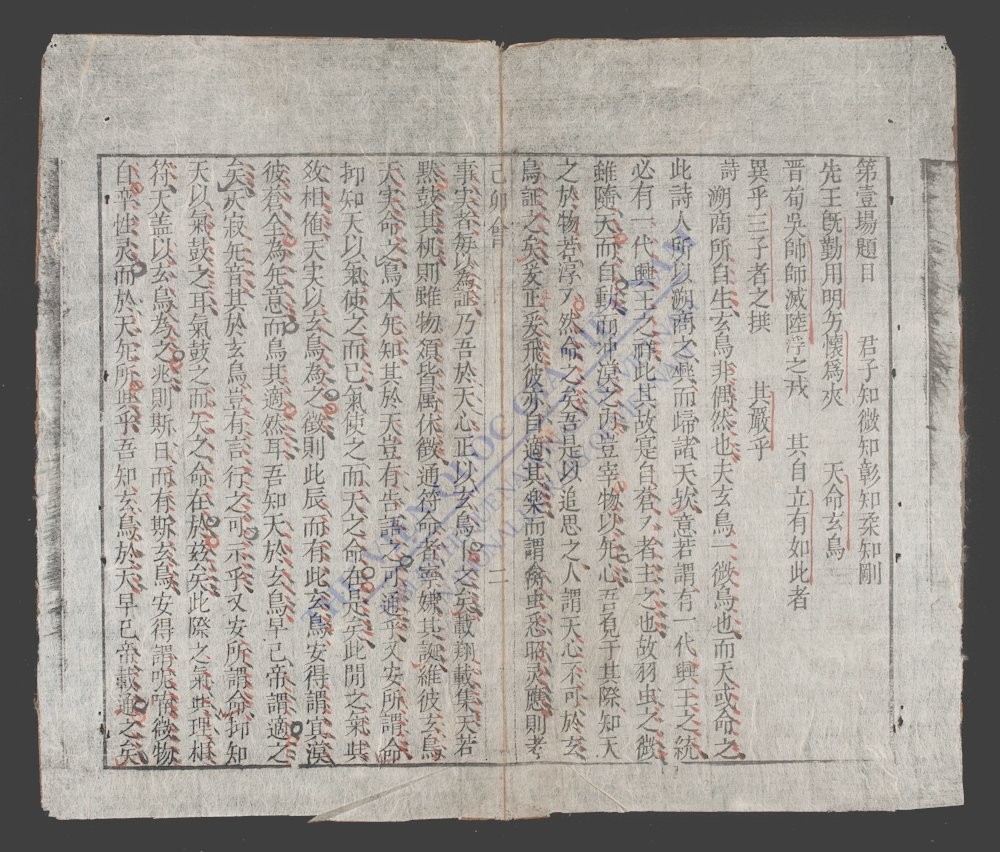 第壹場題目　君子知微知彰知柔知剛
先王旣勤用明德懷爲夾　天命玄鳥
晋荀吳帥師滅陸渾之戎　其自立有如此者
異乎三子者之撰　其嚴乎
詩溯商所自生玄鳥非偶然也夫玄鳥一微鳥也而天或命之
此詩人所以溯商之興而歸諸天坎意若謂有一代興王之統
必有一代興王之祥此其故寔自蒼々者主之也故羽虫之微
雖隨天而自動而冲漠之內豈宰物以无心吾見于其際知天
之於物若浮々然命之矣吾是以追思之人謂天心不可於玄
鳥証之矣爰止爰飛彼亦自適其樂而謂禽虫悉昭灵應則考
己卯會　二
事实者每以為証乃吾於天心正以玄鳥卜之矣載翔載集天若
黙鼓其机則雖物類皆属休徵通符命者寧嫌其誕維彼玄鳥
天实命之鳥本无知其於天豈有告語之可通乎又安所謂命
抑知天以氣使之而已氣使之而天之命在是矣此間之氣與
效相値天实以玄鳥為之徵則此辰而有此玄鳥安得謂冥漠
彼蒼全為无意而鳥其適然耳吾知天於玄鳥早已帝謂適之
矣天寂无音其於玄鳥豈有言行之可示乎又安所謂命抑知
天以氣鼓之耳氣鼓之而天之命在於茲矣此際之氣與理相
符天盖以玄鳥為之兆則斯日而有斯玄鳥安得謂呢喃微物
自率性灵而於天无所與乎吾知玄鳥於天早已帝載通之矣
THƯ VIỆN QUỐC GIA VIỆT NAM
THE NATIONAL LIBRARY OF VIETNAM